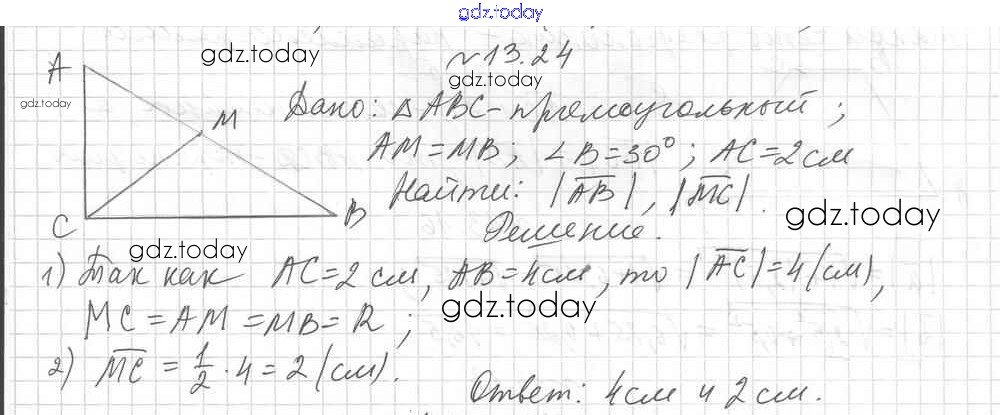 gdz.today
№13.24
gdz.today
gdz.today
gdz.today
A
M
C
B
Дано: △ABC - прямоугольный;
AM = MB; ∠B = 30°; AC = 2 см
Найти: |AB|, |MC|.
gdz.today
Решение.
gdz.today
1) Так как AC = 2 см, AB = 4 см, то |AC| = 4 (см),
MC = AM = MB = R;
gdz.today
2) MC = 1/2 · 4 = 2 (см).
Ответ: 4 см и 2 см.